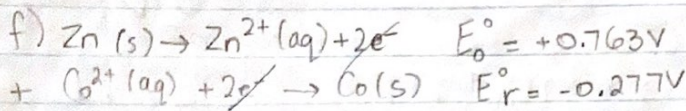 f) Zn (s) → Zn²⁺ (aq) + 2e⁻ E°₀ = +0.763V
+ Co²⁺ (aq) + 2e⁻ → Co(s) E°r = -0.277V